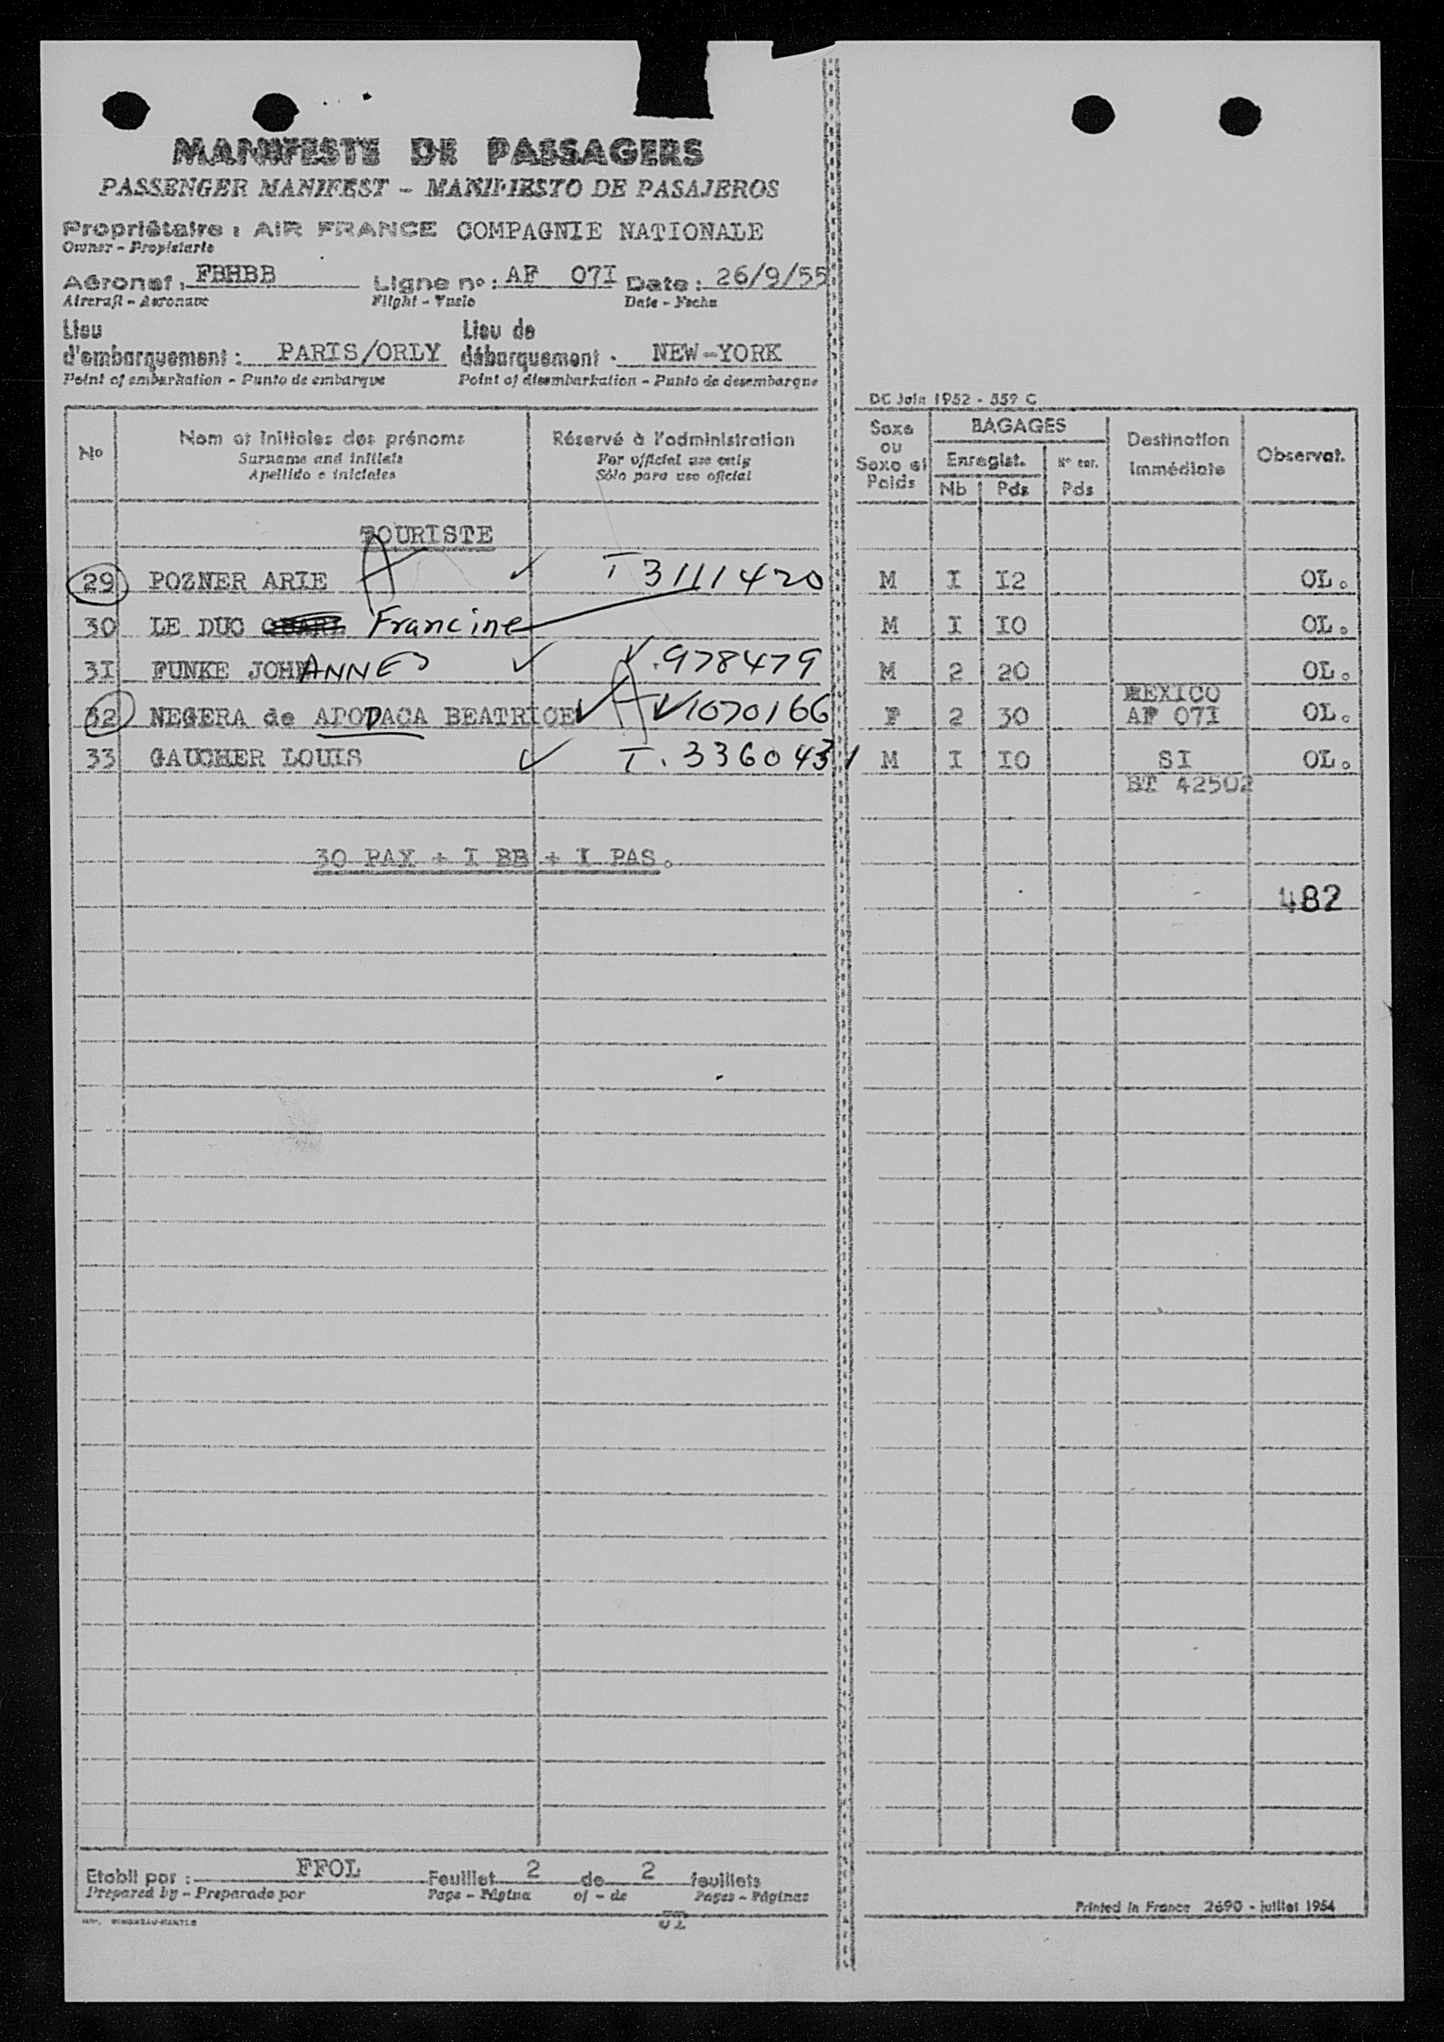 MANIFESTE DE PASSAGERS
PASSENGER MANIFEST - MANIFIESTO DE PASAJEROS
Propriétaire : AIR FRANCE COMPAGNIE NATIONALE
Owner - Propietario
Aéronef : FBHBB Ligne n° : AF 071 Date : 26/9/55
Aircraft - Aeronave Flight - Vuelo Date - Fecha
Lieu d'embarquement : PARIS/ORLY Lieu de débarquement : NEW-YORK
Point of embarkation - Punto de embarque Point of disembarkation - Punto de desembarque
DC Juin 1952 - 559 C
No Nom et initiales des prénoms Réservé à l'administration Sexe ou Sexe et Poids BAGAGES Destination Immédiate Observat.
Surname and initials For official use only Enregist. N° enr.
Apellido e iniciales Sólo para uso oficial Nb Pds Pds
TOURISTE
29 POZNER ARIE A ✓ T 3111420 M I I2 OL.
30 LE DUC Francine M I IO OL.
3I FUNKE JOHANNES ✓ V.978479 M 2 20 OL.
32 NEGERA de APODACA BEATRICE ✓ A V1070166 F 2 30 MEXICO AF 07I OL.
33 GAUCHER LOUIS ✓ T. 3360431 M I IO SI OL.
BT 42502
30 PAX + I BB + I PAS.
482
Etabli par : FFOL Feuillet 2 de 2 feuillets
Prepared by - Preparado por Page - Página of - de Pages - Páginas
Printed in France 2690 - juillet 1954